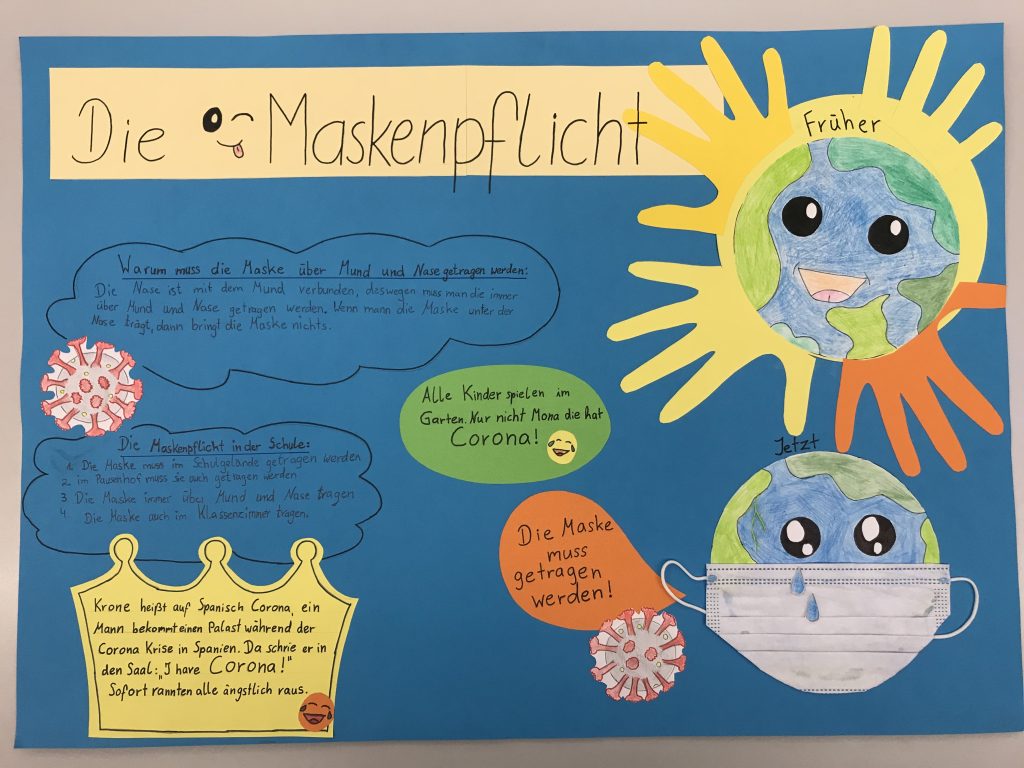 Die Maskenpflicht
Früher
Warum muss die Maske über Mund und Nase getragen werden:
Die Nase ist mit dem Mund verbunden, deswegen muss man die immer
über Mund und Nase getragen werden. Wenn mann die Maske unter der
Nase trägt, dann bringt die Maske nichts.
Alle Kinder spielen im
Garten. Nur nicht Mona die hat
Corona!
Die Maskenpflicht in der Schule:
1. Die Maske muss im Schulgelände getragen werden
2. im Pausenhof muss sie auch getragen werden
3 Die Maske immer über Mund und Nase tragen
4 Die Maske auch im Klassenzimmer tragen.
Jetzt
Die Maske
muss
getragen
werden!
Krone heißt auf Spanisch Corona, ein
Mann bekommt einen Palast während der
Corona Krise in Spanien. Da schrie er in
den Saal: „I have Corona!"
Sofort rannten alle ängstlich raus.